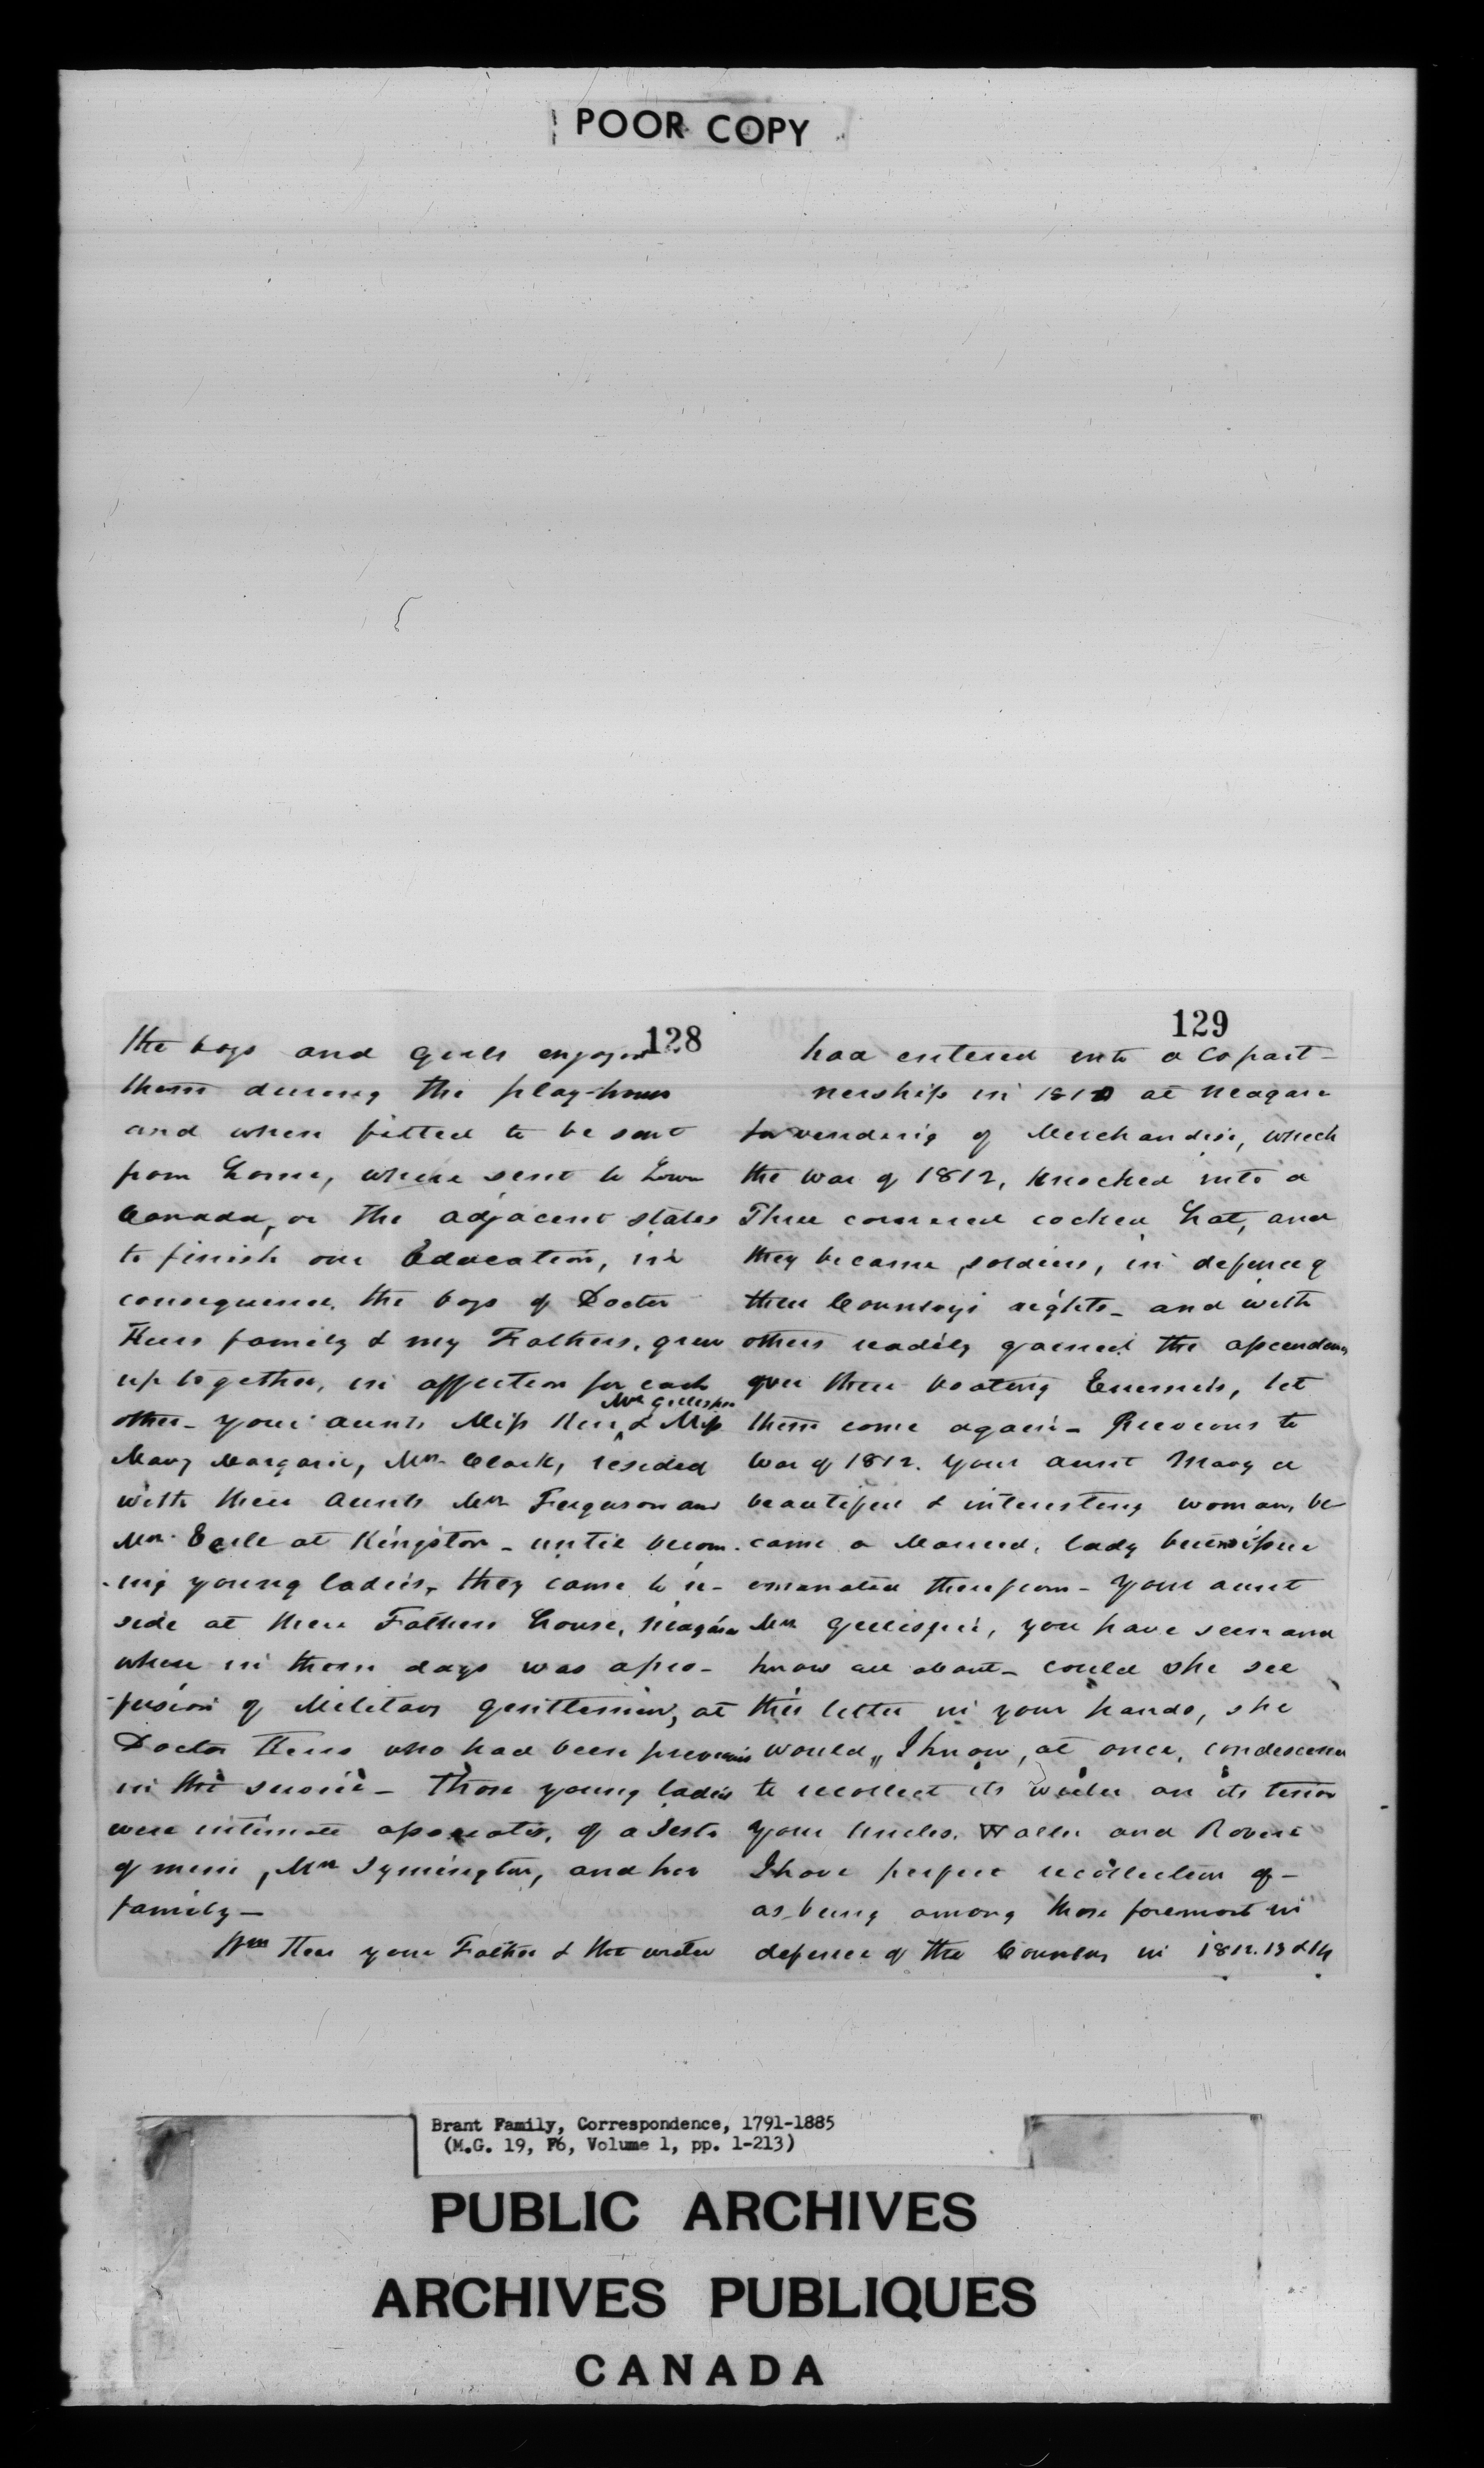 POOR COPY
128
the boys and girls enjoyed
them during the play-hours
and when fitted to be sent
from home, where sent to Lower
Canada, or the adjacent states
to finish our Education, in
consequence, the boys of Doctor
Kerrs family & my Fathers, grew
up together, in affection for each
Mrs Gillespie
other - your aunts Miss Kerr, & Miss
Mary Margaret, Mrs Clark, resided
with their Aunts Mrs Ferguson and
Mrs Earle at Kingston - until becom-
-ing young ladies, they came to re-
side at their Fathers house, Niagara
where in those days was a pro-
-fusion of Military gentlemen, at
Doctor Kerrs who had been previous
in the service - Those young ladies
were intimate associates, of a Sister
of mine, Mrs Symington, and her
family -
Wm Kerr your Father & the writer
129
had entered into a Copart-
nership in 1810 at Niagara
for vending of Merchandise, which
the War of 1812, knocked into a
Three cornered cocked hat, and
they became soldiers, in defence of
their Countrys rights - and with
others readily gained the ascendency
over their boating Enemies, let
them come again - Previous to
War of 1812. your aunt Mary a
beautiful & interesting woman, be
came a Married, lady
emanated therefrom - Your aunt
Mrs Gillespie, you have seen and
know all about - could she see
this letter in your hands, she
would, I know, at once, condescend
to recollect its writer on its tenor
Your Uncles, Walter and Robert
I have perfect recollection of -
as being among those foremost in
defence of the Country in 1812. 13 & 14
Brant Family, Correspondence, 1791-1885
(M.G. 19, F6, Volume 1, pp. 1-213)
PUBLIC ARCHIVES
ARCHIVES PUBLIQUES
CANADA